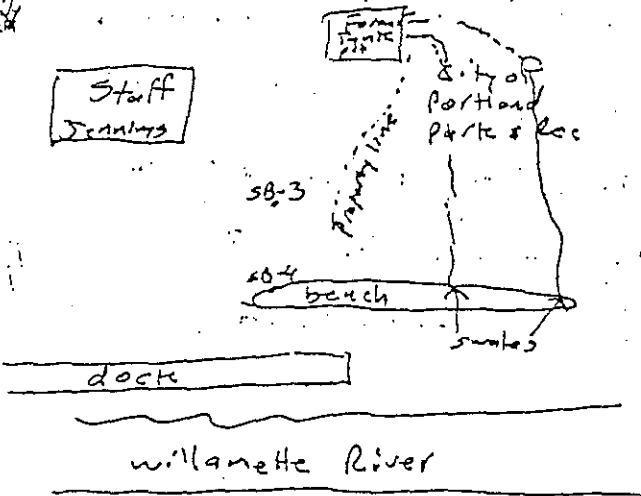 Staff
Jennings
City of
Portland
Parks & Rec
Property line
SB-3
SB-4
beach
swales
dock
Willamette River